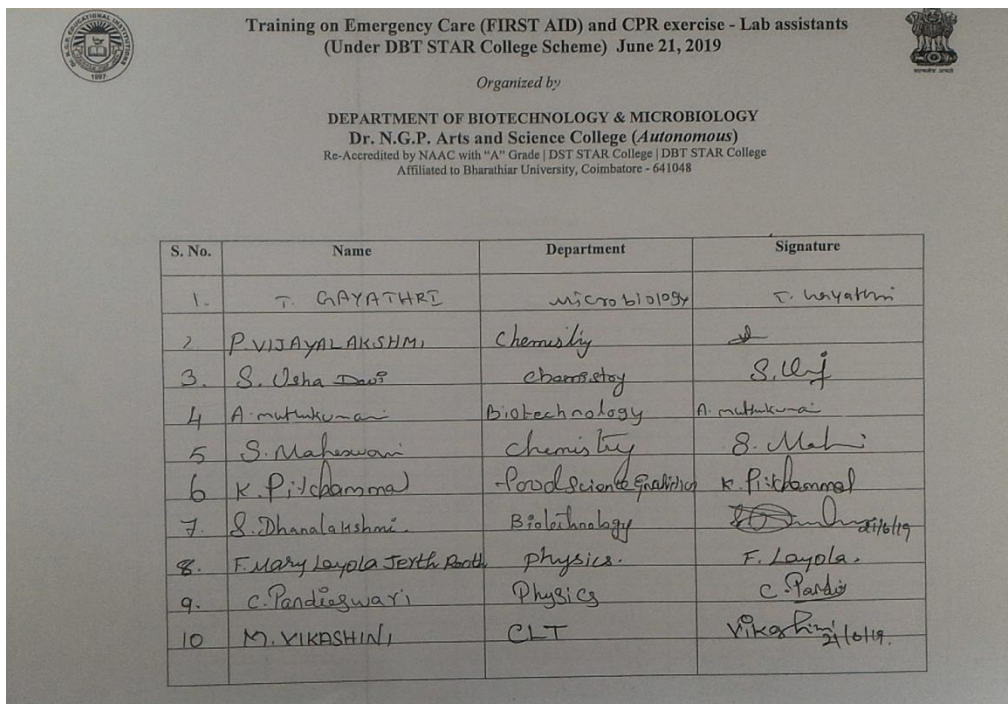 Training on Emergency Care (FIRST AID) and CPR exercise - Lab assistants
(Under DBT STAR College Scheme) June 21, 2019
Organized by
DEPARTMENT OF BIOTECHNOLOGY & MICROBIOLOGY
Dr. N.G.P. Arts and Science College (Autonomous)
Re-Accredited by NAAC with "A" Grade | DST STAR College | DBT STAR College
Affiliated to Bharathiar University, Coimbatore - 641048
S. No. Name Department Signature
1. T. GAYATHRI Microbiology T. Gayathri
2. P. VIJAYALAKSHMI Chemistry
3. S. Usha Devi Chemistry S.
4 A. muthukumari Biotechnology A. muthukumari
5 S. Maheswari Chemistry S. Mahi
6 K. Pitchammal Food Science K. Pitchammal
7. S. Dhanalakshmi. Biotechnology 21/6/19
8. F. Mary Loyola Jerth physics. F. Loyola.
9. C. Pandieswari Physics C. Pandi
10 M. VIKASHINI CLT Vikashini 21/6/19.